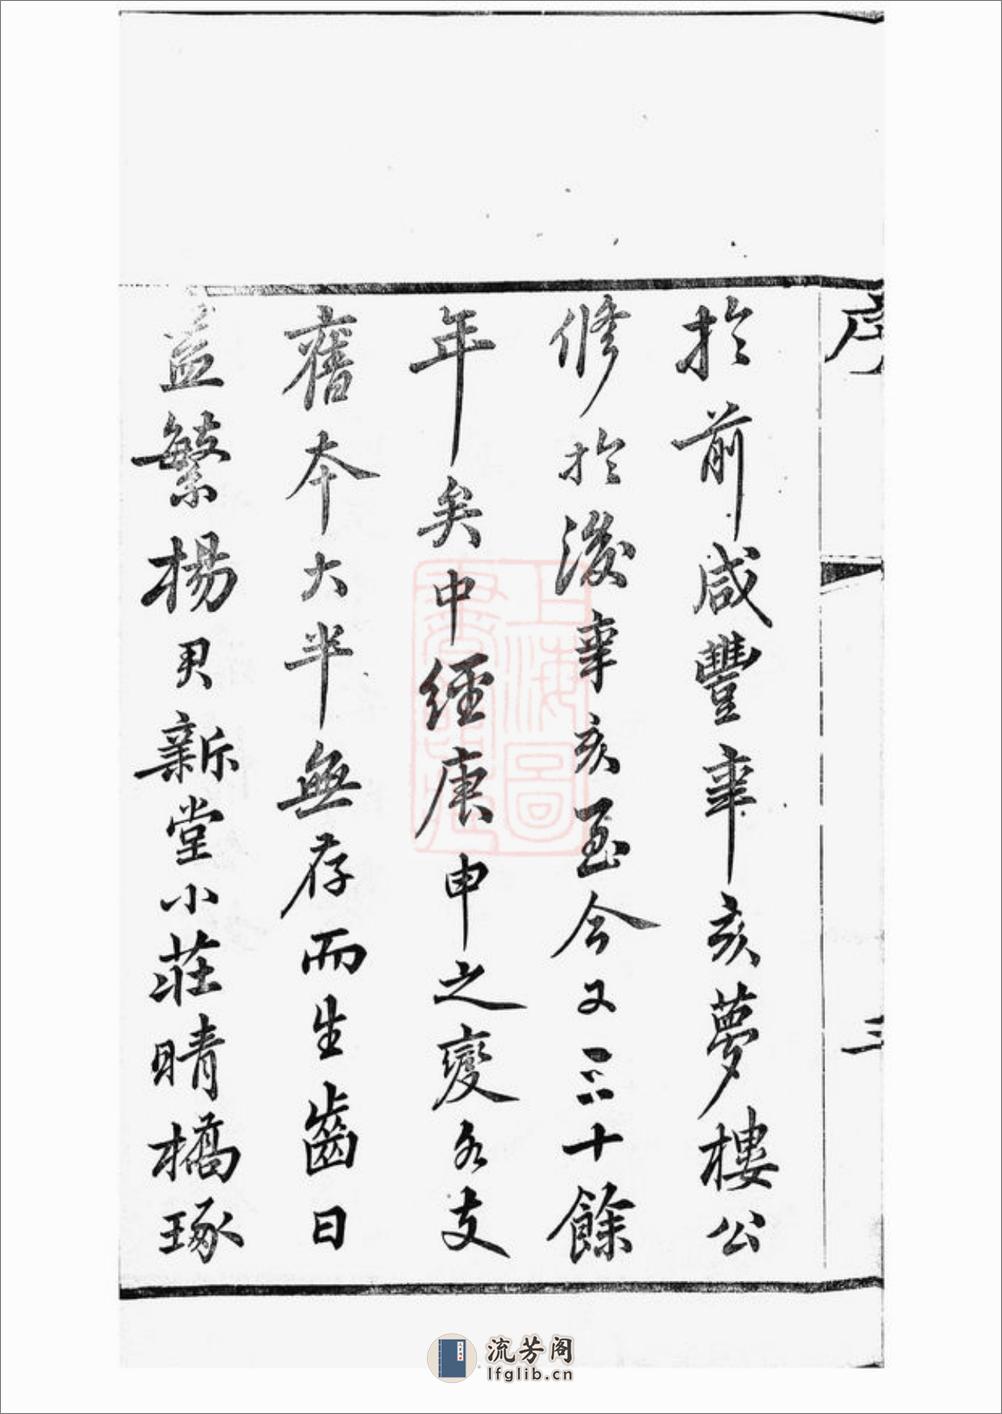 序
三
於前咸豐辛亥夢樓公
修於後辛亥至今又三十餘
年矣中經庚申之變各支
舊本大半無存而生齒日
益繁楊君新堂小莊晴橋琢
上海圖
書館藏
流芳阁
lfglib.cn